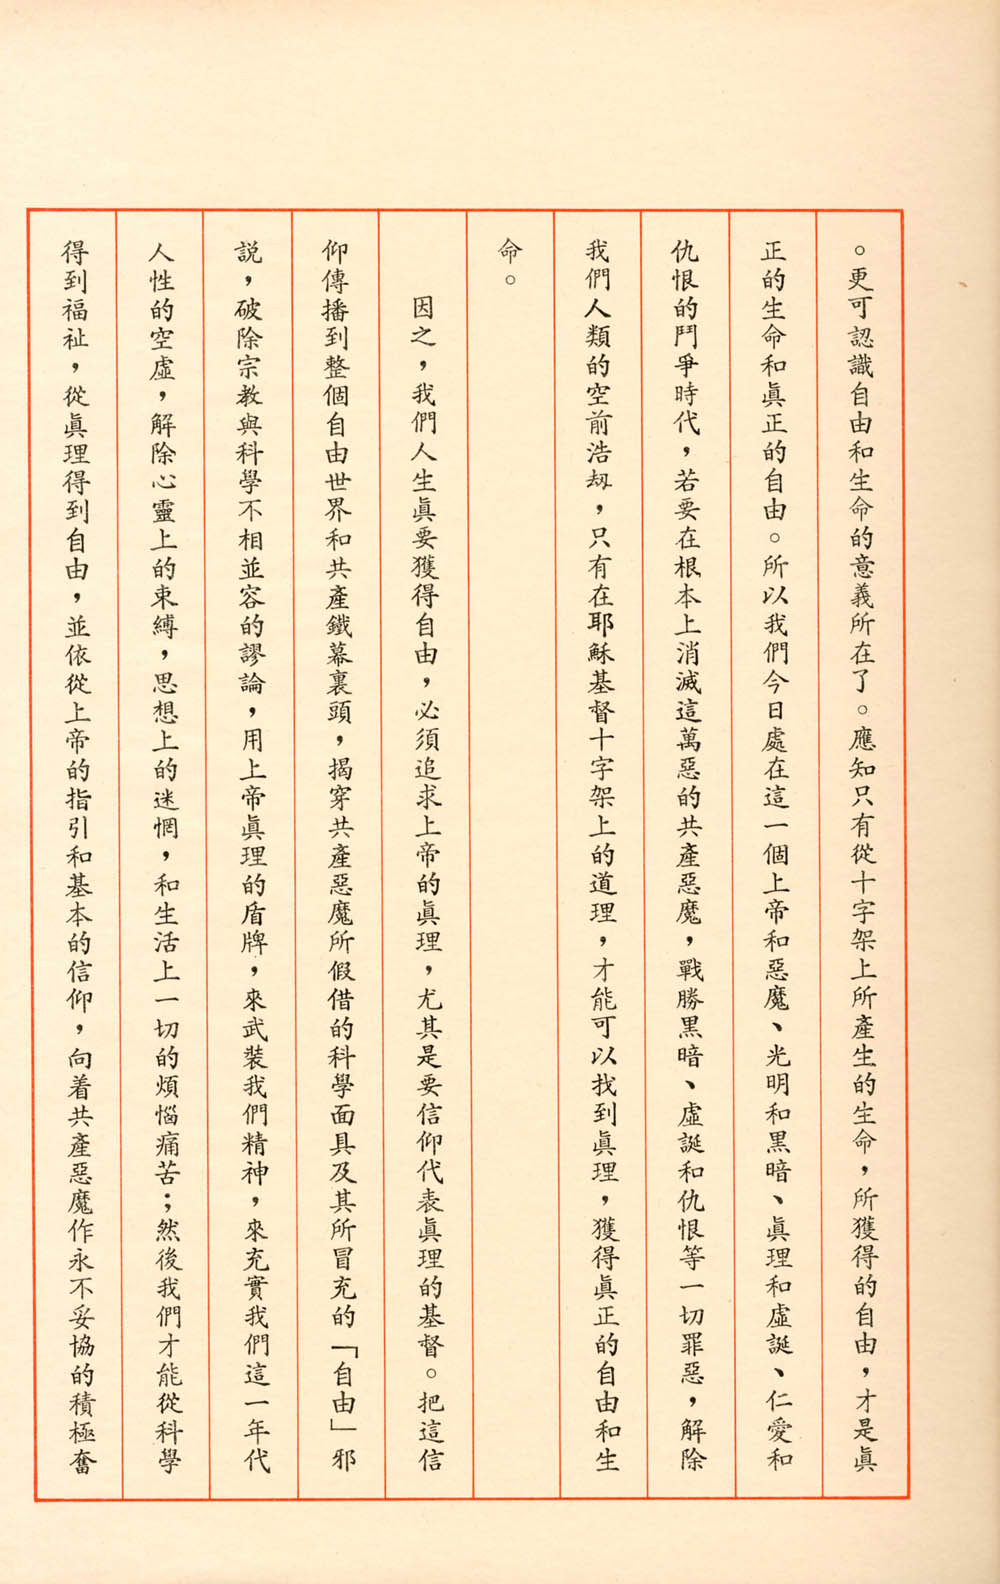 。更可認識自由和生命的意義所在了。應知只有從十字架上所產生的生命，所獲得的自由，才是眞
正的生命和眞正的自由。所以我們今日處在這一個上帝和惡魔、光明和黑暗、眞理和虛誕、仁愛和
仇恨的鬥爭時代，若要在根本上消滅這萬惡的共產惡魔，戰勝黑暗、虛誕和仇恨等一切罪惡，解除
我們人類的空前浩刼，只有在耶穌基督十字架上的道理，才能可以找到眞理，獲得眞正的自由和生
命。
因之，我們人生眞要獲得自由，必須追求上帝的眞理，尤其是要信仰代表眞理的基督。把這信
仰傳播到整個自由世界和共產鐵幕裏頭，揭穿共產惡魔所假借的科學面具及其所冒充的「自由」邪
説，破除宗教與科學不相並容的謬論，用上帝眞理的盾牌，來武裝我們精神，來充實我們這一年代
人性的空虛，解除心靈上的束縛，思想上的迷惘，和生活上一切的煩惱痛苦；然後我們才能從科學
得到福祉，從眞理得到自由，並依從上帝的指引和基本的信仰，向着共產惡魔作永不妥協的積極奮